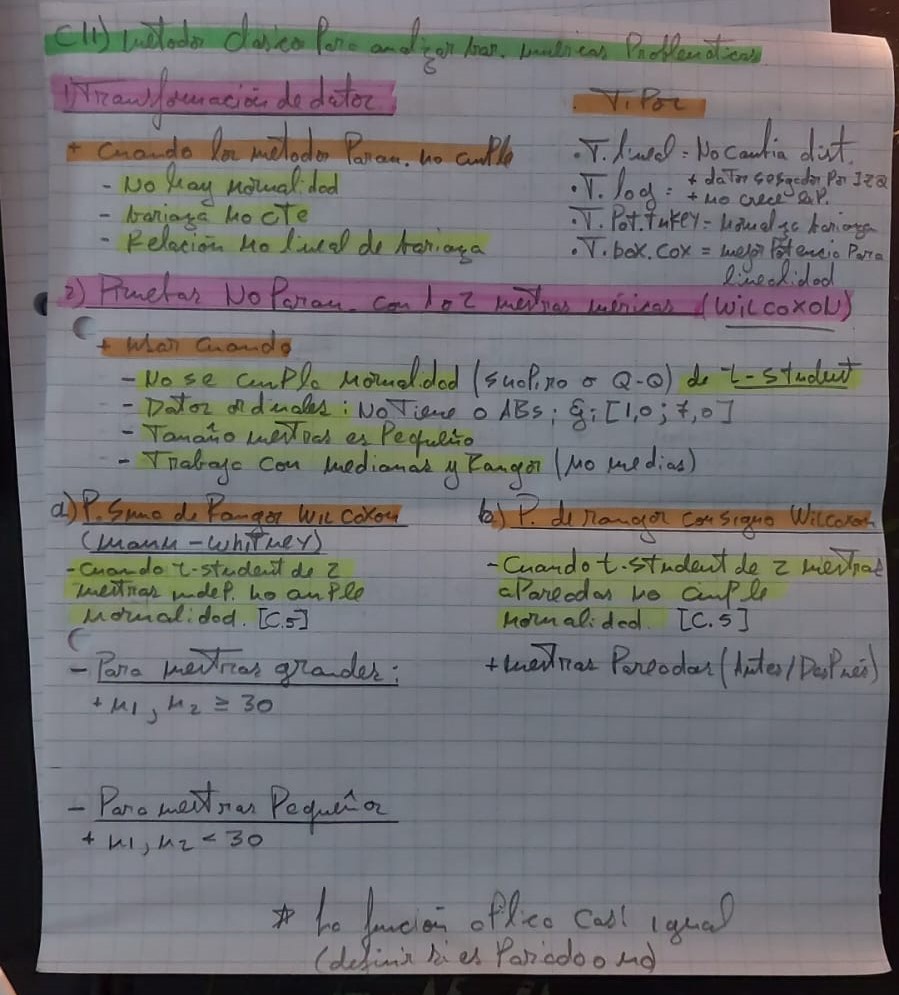 C11) Métodos clásico Para analizar var. numéricas Problemáticas
1) Transformación de datos
. Tipos
+ Cuando los métodos Param. no cumple
- No hay normalidad
- Varianza no cte
- Relación no lineal de varianza
• T. lineal = No cambia dist.
• T. log = + datos sesgados Por IZQ
+ no crece
• T. Pot. Tukey = varianza
• T. box. cox = mejor Potencia Para linealidad
2) Pruebas No Param. con 1 o 2 muestras numéricas (WILCOXON)
+ Usar cuando
- No se cumple normalidad (shapiro o Q-Q) de t-student
- Datos ordinales: No Tiene 0 ABS; Ej: [1,0 ; 7,0]
- Tamaño muestras es Pequeño
- Trabajo con medianas y Rangos (no medias)
a) P. Suma de Rangos WILCOXON
(Mann - Whitney)
- Cuando t-student de 2
muestras indep. no cumple
normalidad. [C.5]
- Para muestras grandes:
+ n1, n2 ≥ 30
- Para muestras Pequeña
+ n1, n2 < 30
b) P. de rangos con signo Wilcoxon
- Cuando t-student de 2 muestras
aPareadas no cumple
normalidad. [C.5]
+ muestras Pareadas (Antes/Después)
* La función aplica casi igual
(definir si es Pariado o no)